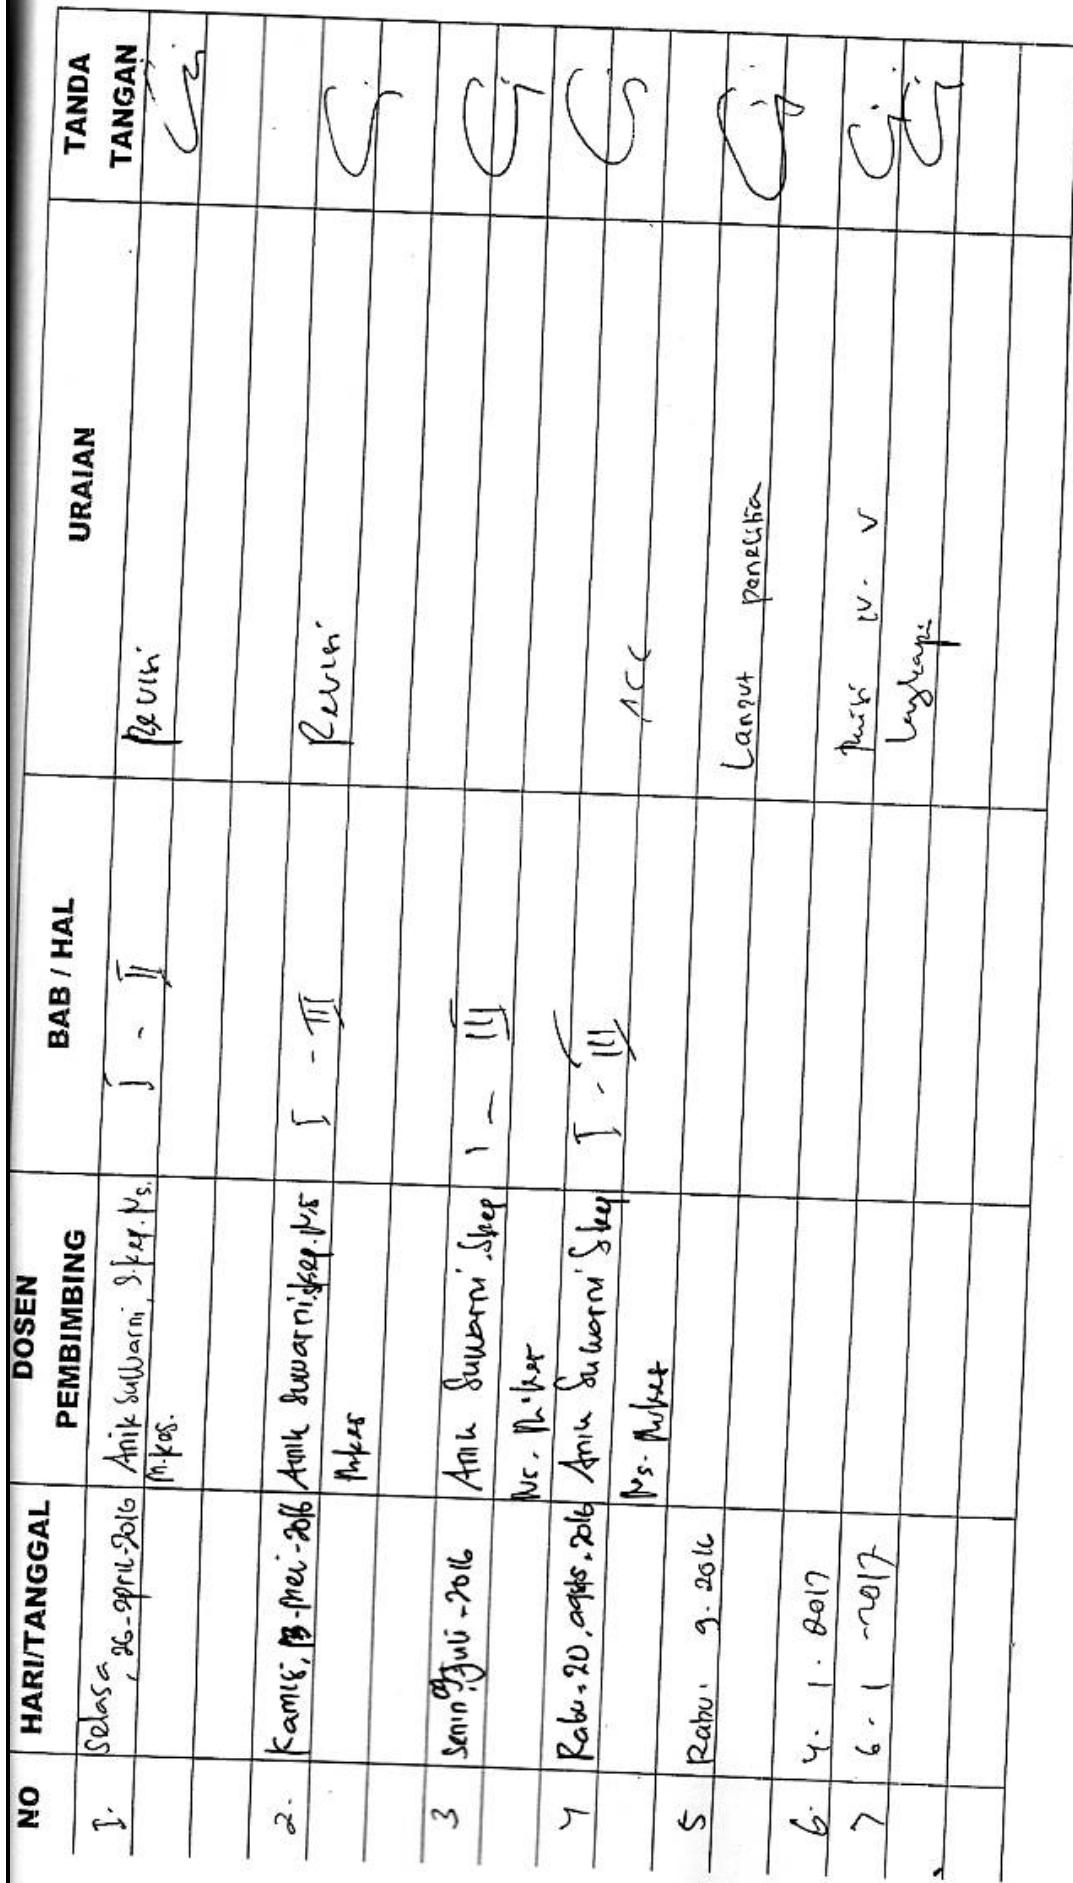 NO HARI/TANGGAL DOSEN PEMBIMBING BAB / HAL URAIAN TANDA TANGAN
1. Selasa, 26-april-2016 Anik Suwarni, S.kep.Ns. I - II Revisi
M.kes.
2. Kamis, 13-Mei-2016 Anik Suwarni,skep.Ns I - III Revisi
Mkes
3 Senin Juli-2016 Anik Suwarni.Skep I - III
Ns. M.kes
4 Rabu, 20, agus, 2016 Anik Suwarni Skep I - III
Ns. Mkes ACC
5 Rabu, 9. 2016 Lanjut penelitia
6. 4. 1. 2017
7 6. 1 -2017 Revisi IV. V
Lengkapi